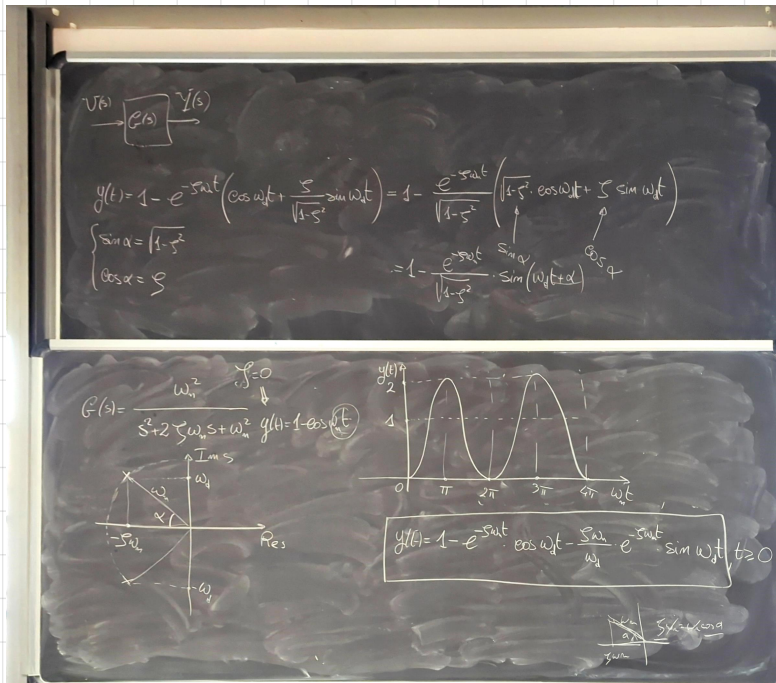 U(s) G(s) Y(s)
y(t)=1-e^{-ζω_n t}(cos ω_d t + ζ/√(1-ζ²) sin ω_d t) = 1- e^{-ζω_n t}/√(1-ζ²) (√(1-ζ²) · cos ω_d t + ζ sin ω_d t)
{ sin α = √(1-ζ²)
cos α = ζ
sin α cos α
= 1- e^{-ζω_n t}/√(1-ζ²) · sin(ω_d t+α)
ζ=0
⇓
G(s)= ω_n²/(s²+2ζω_n s+ω_n²)
y(t)=1-cos ω_n t
Im s
ω_d
ω_n
α
-ζω_n
Re s
ω_d
y(t)
2
1
0 π 2π 3π 4π ω_n t
y(t)=1-e^{-ζω_n t} · cos ω_d t - ζω_n/ω_d · e^{-ζω_n t} · sin ω_d t, t≥0
ω_n
α
ζω_n
ζω_n=ω_n cos α